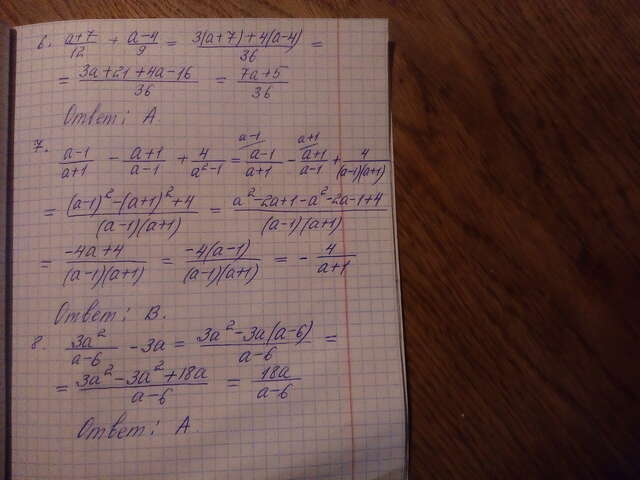 6. (a+7)/12 + (a-4)/9 = (3(a+7)+4(a-4))/36 =
= (3a+21+4a-16)/36 = (7a+5)/36
Ответ: А.
7. (a-1)/(a+1) - (a+1)/(a-1) + 4/(a²-1) = ᵃ⁻¹/(a-1)/(a+1) - ᵃ⁺¹/(a+1)/(a-1) + 4/((a-1)(a+1))
= ((a-1)²-(a+1)²+4)/((a-1)(a+1)) = (a²-2a+1-a²-2a-1+4)/((a-1)(a+1))
= (-4a+4)/((a-1)(a+1)) = (-4(a-1))/((a-1)(a+1)) = - 4/(a+1)
Ответ: В.
8. 3a²/(a-6) - 3a = (3a²-3a(a-6))/(a-6) =
= (3a²-3a²+18a)/(a-6) = 18a/(a-6)
Ответ: А